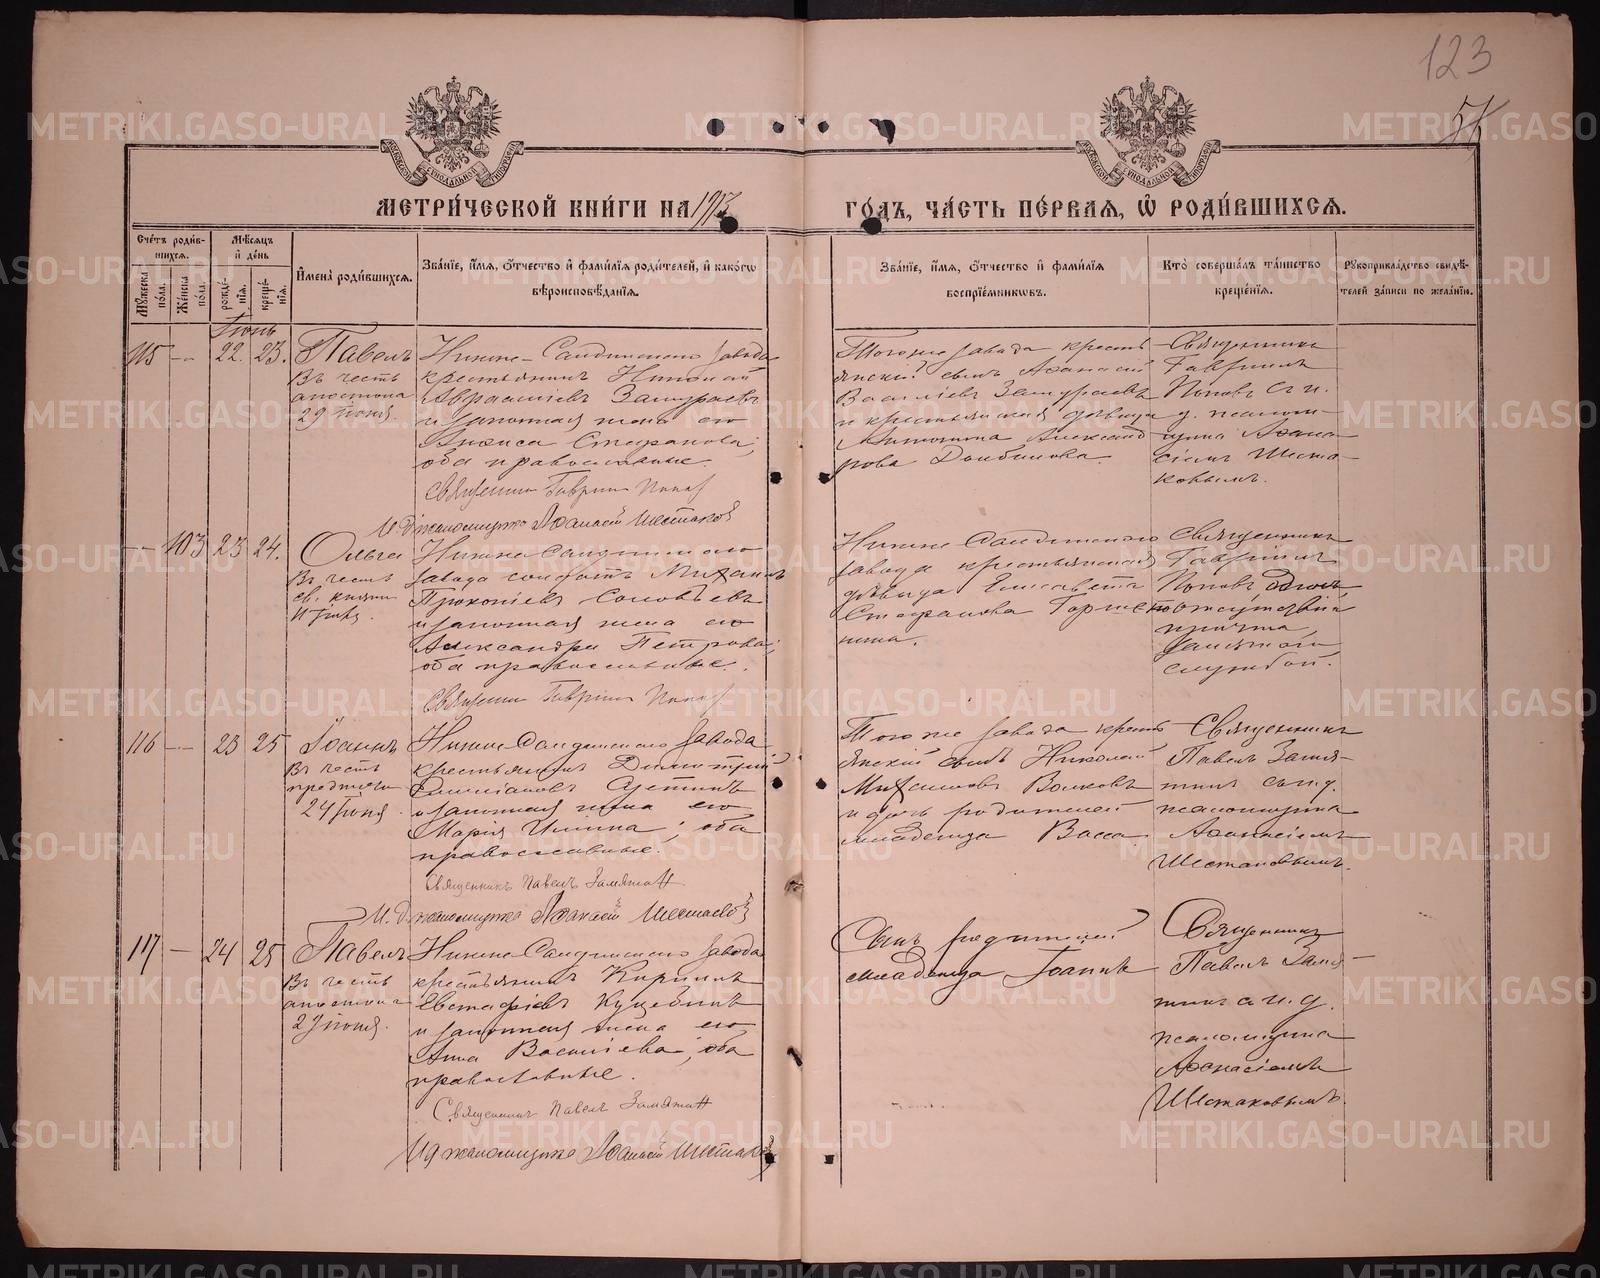 123
МЕТРИЧЕСКОЙ КНИГИ НА 1913 ГОДЪ, ЧАСТЬ ПЕРВАЯ, Ѡ РОДИВШИХСЯ.
Счетъ родившихся.
Мѣсяцъ и день
Имена родившихся.
Званіе, имя, отчество и фамилія родителей, и какогѡ вѣроисповѣданія.
Званіе, имя, отчество и фамилія воспріемниковъ.
Кто совершалъ таинство крещенія.
Рукоприкладство свидѣтелей записи по желанію.
Мужеска пола.
Женска пола.
рожденія.
крещенія.
Іюнь
115 - 22. 23. Павелъ
Въ честь
апостола
29 іюня.
Нижне-Салдинскаго завода
крестьянинъ Николай
Авраамiевъ
и законная жена его
Анѳиса Стефанова;
оба православные.
Священникъ Гавріилъ Поповъ
И. д. псаломщика Аѳанасій Шестаковъ
Того же завода кресть-
янскій сынъ Аѳанасій
Васильевъ
и крестьянская дѣвица
Антонина Александ-
рова
Священникъ
Гавріилъ
Поповъ съ и.
д. псалом-
щика Аѳана-
сіемъ Шеста-
ковымъ.
- 103 23 24. Ольга
Въ честь
св. княгини
11 іюля.
Нижне-Салдинскаго
завода солдатъ Михаилъ
Прокопіевъ Соловьевъ
и законная жена его
Александра Петрова;
оба православные.
Священникъ Гавріилъ Поповъ
Нижне-Салдинскаго
завода крестьянская
дѣвица Елисавета
Стефанова
Священникъ
Гавріилъ
Поповъ, одинъ,
отсутствій
причта
занятаго
службой.
116 - 23 25 Іоаннъ
Въ честь
предтечи
24 іюня.
Нижне-Салдинскаго завода
крестьянинъ Димитрій
и законная жена его
Марія Ильина; оба
православные.
Священникъ Павелъ Замятинъ
И. д. псаломщика Аѳанасій Шестаковъ
Того же завода кресть-
янскій сынъ Николай
Михаиловъ Волковъ
и дочь родителей
младенца Васса.
Священникъ
Павелъ Замя-
тинъ съ и. д.
псаломщика
Аѳанасіемъ
Шестаковымъ.
117 - 24 25 Павелъ
Въ честь
апостола
29 іюня.
Нижне-Салдинскаго завода
крестьянинъ Кириллъ
Евстафіевъ
и законная жена его
Анна Васильева; оба
православные.
Священникъ Павелъ Замятинъ
И д псаломщика Аѳанасій Шестаковъ
Сынъ родителей
младенца Іоаннъ
Священникъ
Павелъ Замя-
тинъ съ и. д.
псаломщика
Аѳанасіемъ
Шестаковымъ.
METRIKI.GASO-URAL.RU